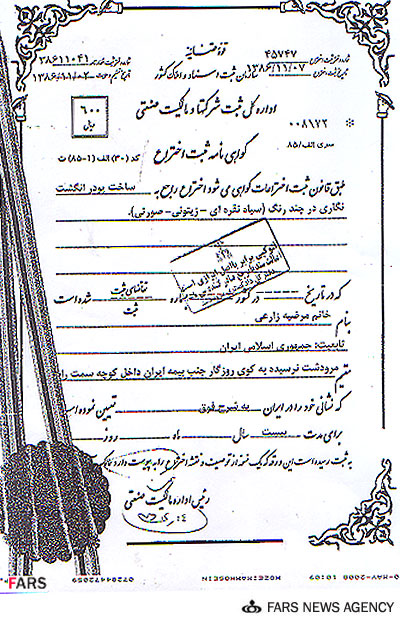 قوه قضائیه
شماره ثبت اختراع ۴۵۷۴۷
تاریخ ثبت اختراع ۱۳۸۶/۱۱/۰۷
سازمان ثبت اسناد و املاک کشور
اداره کل ثبت شرکتها و مالکیت صنعتی
۶۰۰
ریال
۰۰۸۱۷۲ *
سری الف/۸۵
گواهی نامه ثبت اختراع
کد (۳۰) الف (1-۸۵) ث
طبق قانون ثبت اختراعات گواهی می شود اختراع راجع به ساخت پودر انگشت
نگاری در چند رنگ (سیاه نقره ای - زیتونی- صورتی).
که در تاریخ در کشور شماره تقاضای ثبت / ثبت شده است
بنام خانم مرضیه زارعی
تابعیت: جمهوری اسلامی ایران
مقیم مرودشت نرسیده به کوی روزگار جنب بیمه ایران داخل کوچه سمت را
که نشانی خود را در ایران به شرح فوق تعیین نموده ا
برای مدت بیست سال ماه روز
به ثبت رسیده است این ورقه که یک نسخه از توصیف و نقشه اختراع را به پیوست دارد
رئیس اداره مالکیت صنعتی
0-MAY-2008 10:09
MOZEIRAMHOSEIN
07284472059
FARS
FARS NEWS AGENCY